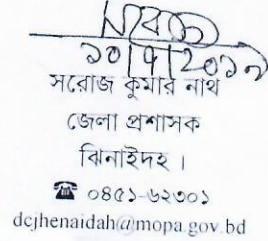 ১০|৭|২০১৯
সরোজ কুমার নাথ
জেলা প্রশাসক
ঝিনাইদহ ।
☎ ০৪৫১-৬২৩০১
dcjhenaidah@mopa.gov.bd